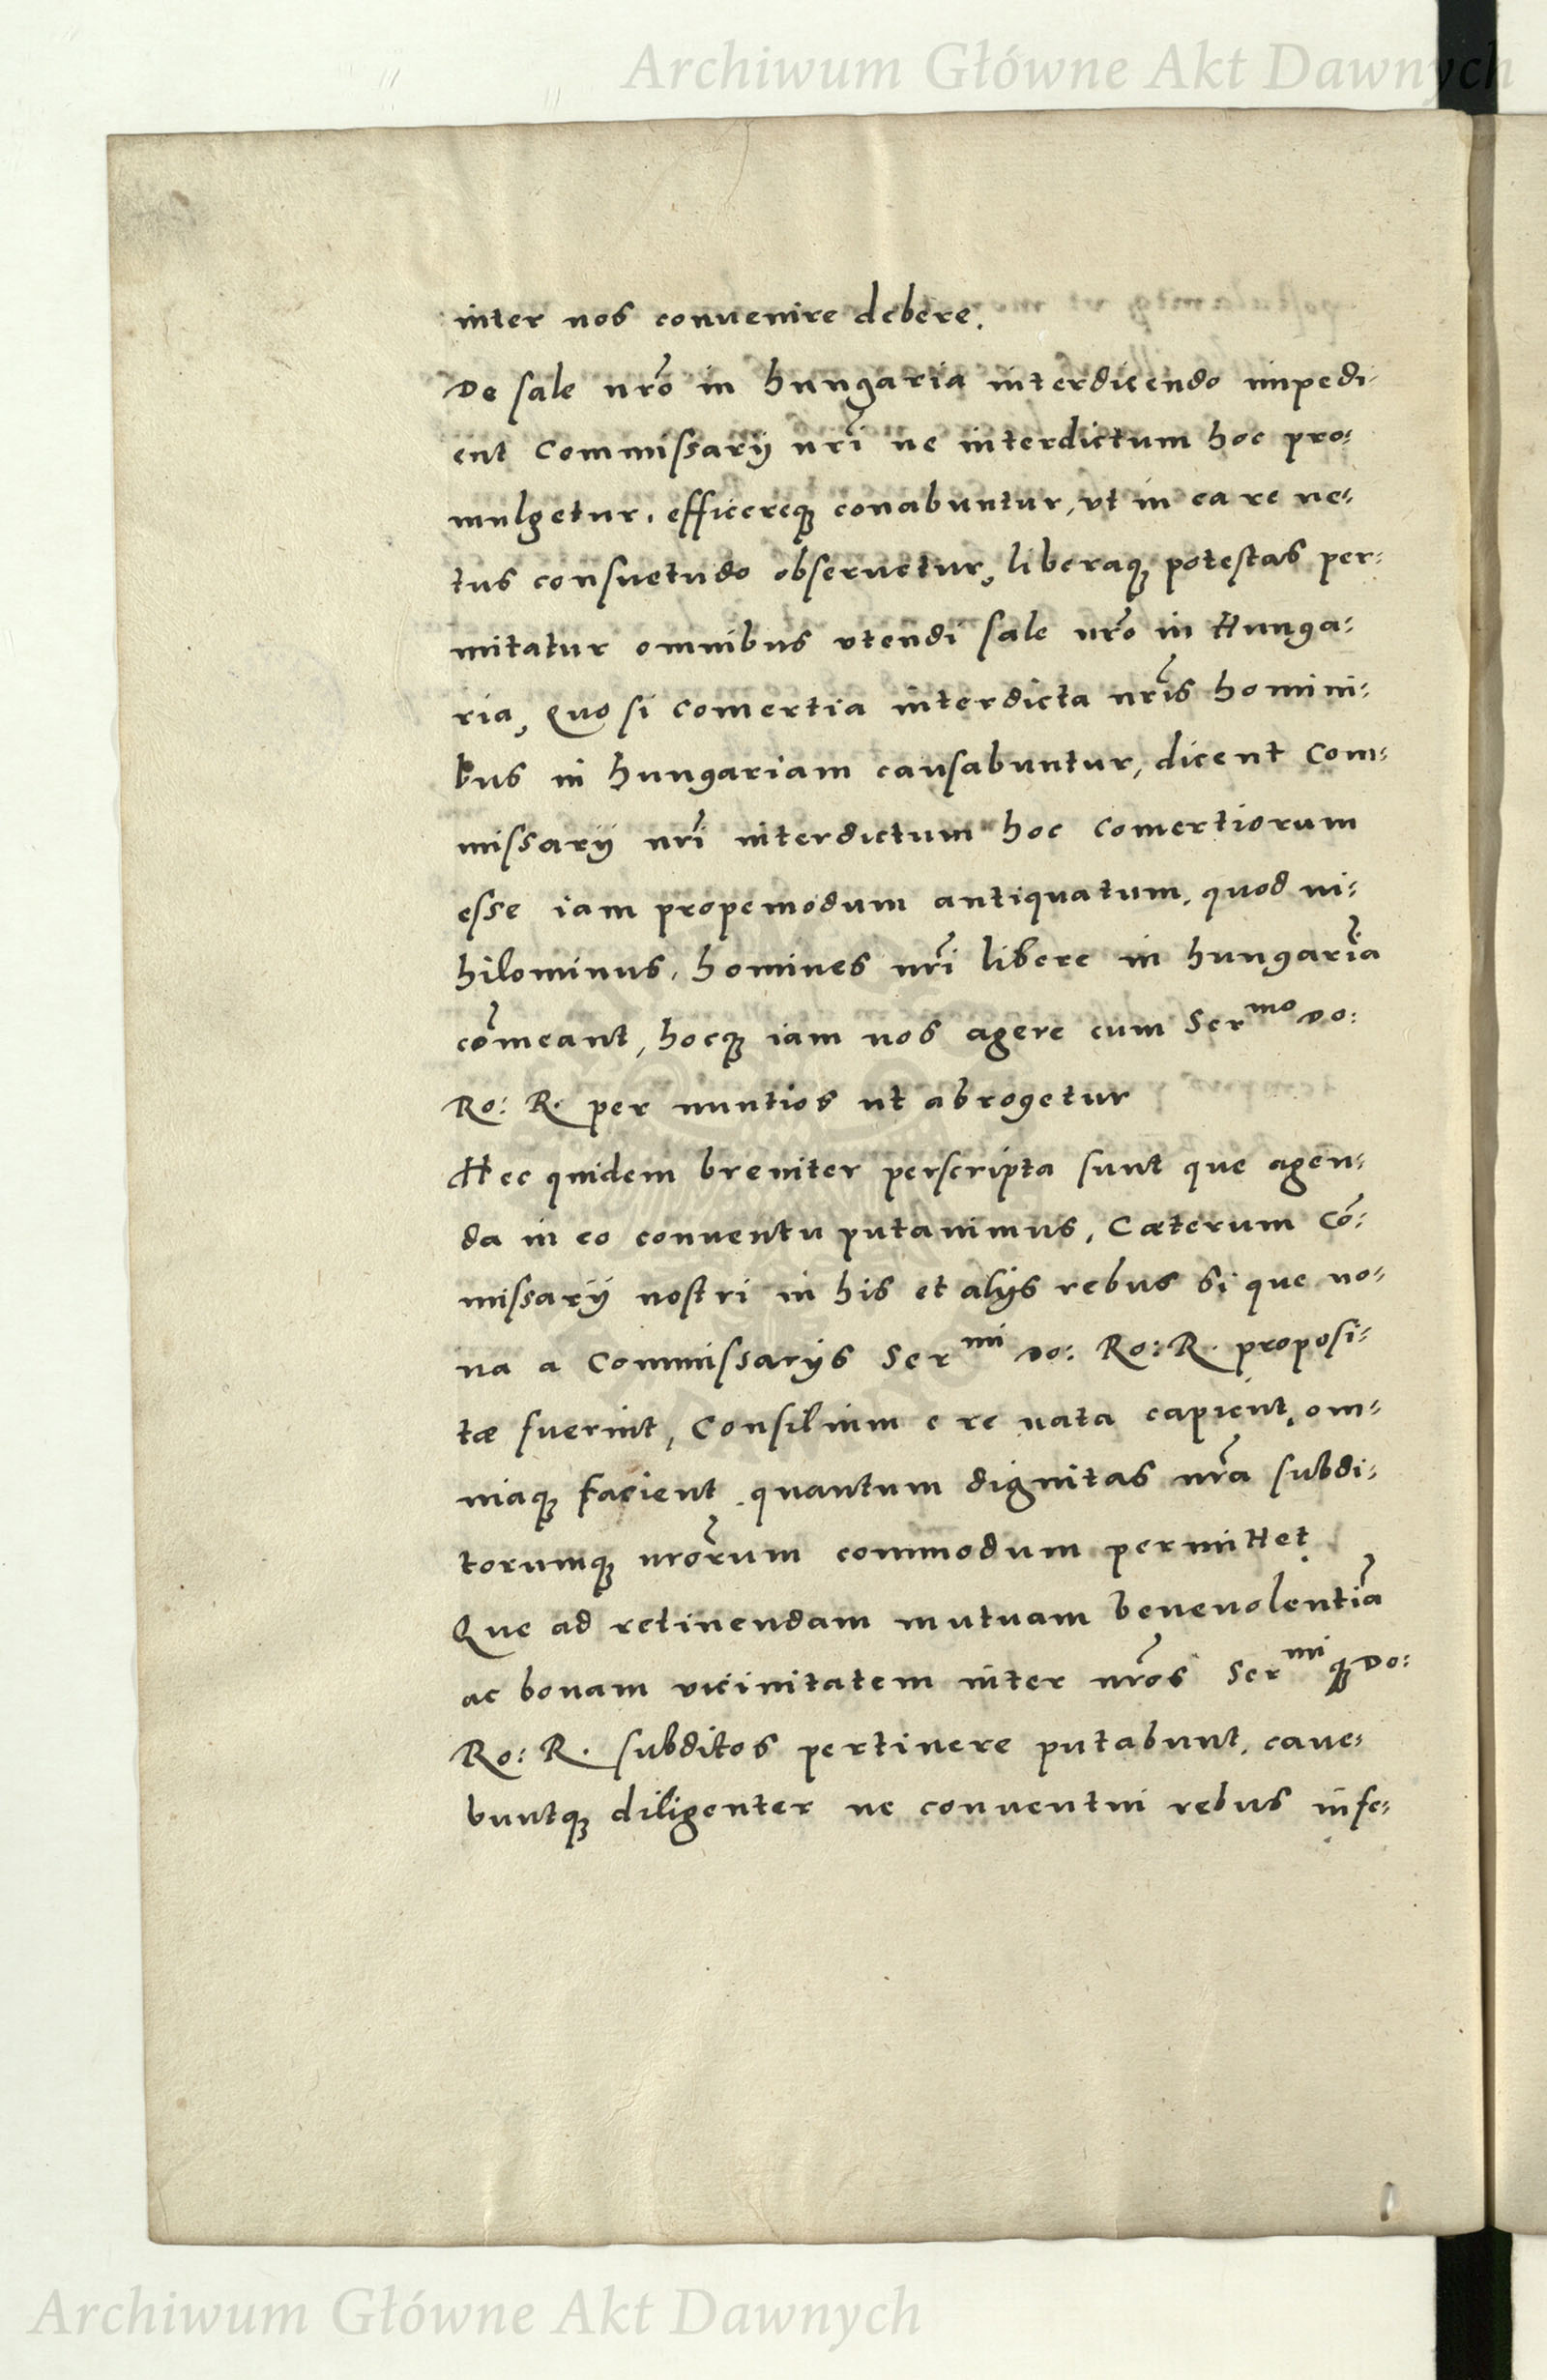 Archiwum Główne Akt Dawnych
inter nos conuenire debere.
De sale nr̃o in hungaria interdicendo impedi-
ent Commissarij nr̃i ne interdictum hoc pro-
mulgetur, efficereqꝫ conabuntur, vt in ea re ve-
tus consuetudo obseruetur, liberaqꝫ potestas per-
mitatur omnibus vtendi sale nr̃o in Hunga-
ria, Quo si comertia interdicta nr̃is homini-
bus in hungariam causabuntur, dicent Com-
missarij nr̃i interdictum hoc comertiorum
esse iam propemodum antiquatum, quod ni-
hilominus, homines nr̃i libere in hungariã
cõmeant, hocqꝫ iam nos agere cum Ser^mo Do:
Ro: R. per nuntios ut abrogetur
Hec quidem breuiter perscripta sunt que agen-
da in eo conuentu putauimus, Cæterum Cõ-
missarij nostri in his et alijs rebus si que no-
ua a Commissarijs Ser^mi Do: Ro: R. proposi-
tæ fuerint, Consilium e re nata capient, om-
niaqꝫ facient quantum dignitas nr̃a subdi-
torumqꝫ nr̃orum commodum permittet
Que ad retinendam mutuam beneuolentiã
ac bonam vicinitatem inter nr̃os Ser^mi qꝫ Do:
Ro: R. subditos pertinere putabunt, caue-
buntqꝫ diligenter ne conuentui rebus infe-
Archiwum Główne Akt Dawnych